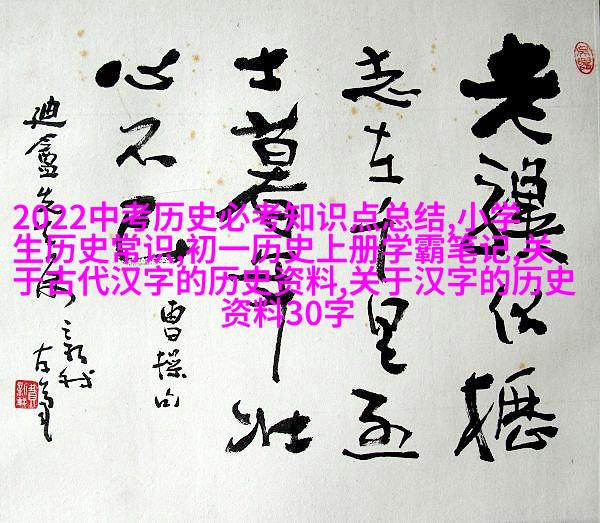 2022中考历史必考知识点总结,小学
生历史常识,初一历史上册学霸笔记,关
于古代汉字的历史资料,关于汉字的历史
资料30字
老驥伏櫪
志在千里烈
士暮年壮
心不已
曹操句